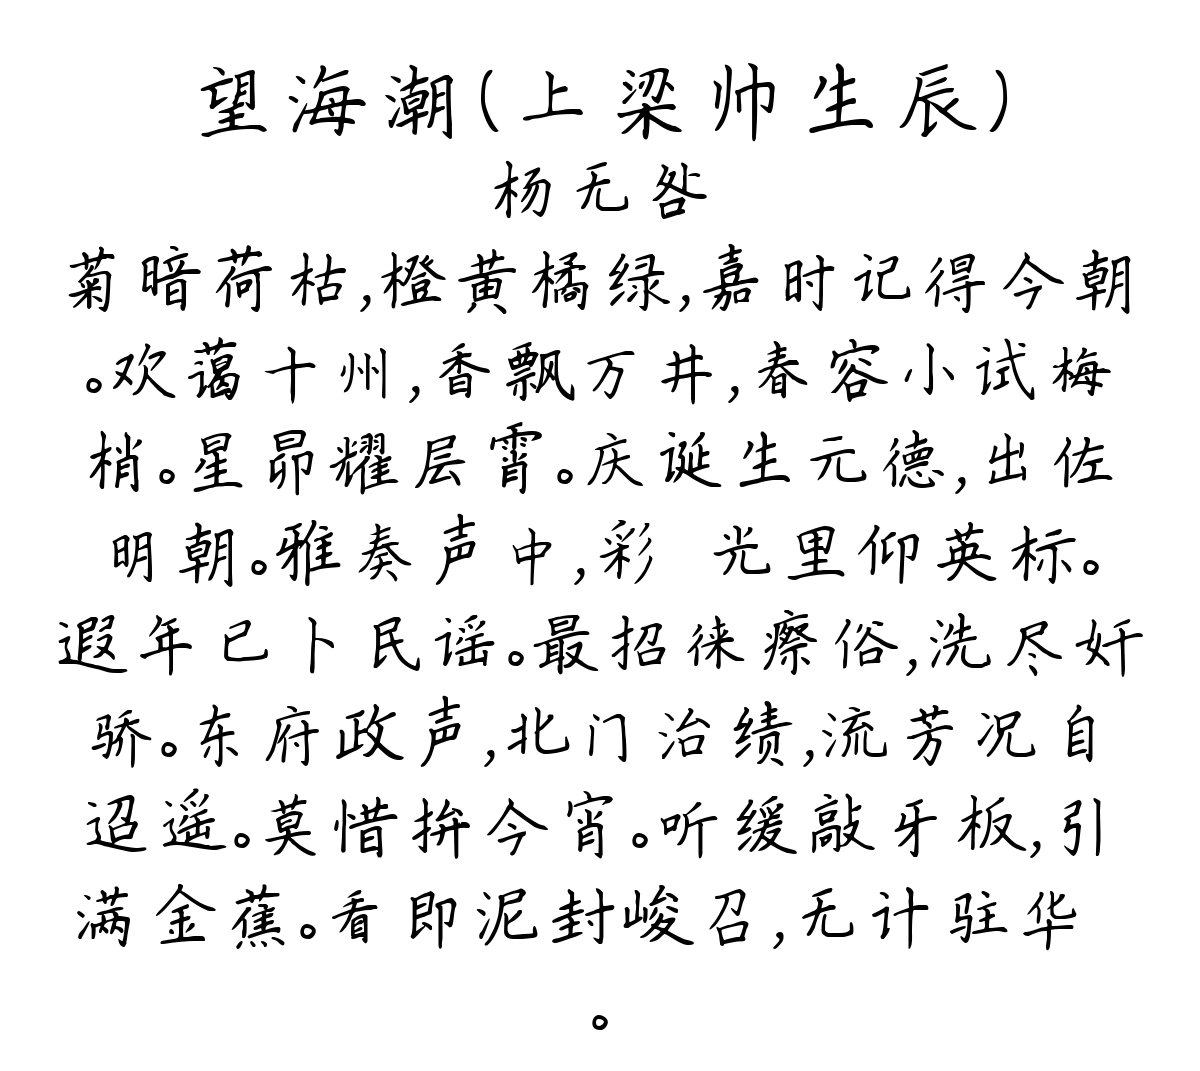 望海潮(上梁帅生辰)
杨无咎
菊暗荷枯,橙黄橘绿,嘉时记得今朝
。欢蔼十州,香飘万井,春容小试梅
梢。星昴耀层霄。庆诞生元德,出佐
明朝。雅奏声中,彩 光里仰英标。
遐年已卜民谣。最招徕瘵俗,洗尽奸
骄。东府政声,北门治绩,流芳况自
迢遥。莫惜拚今宵。听缓敲牙板,引
满金蕉。看即泥封峻召,无计驻华
。